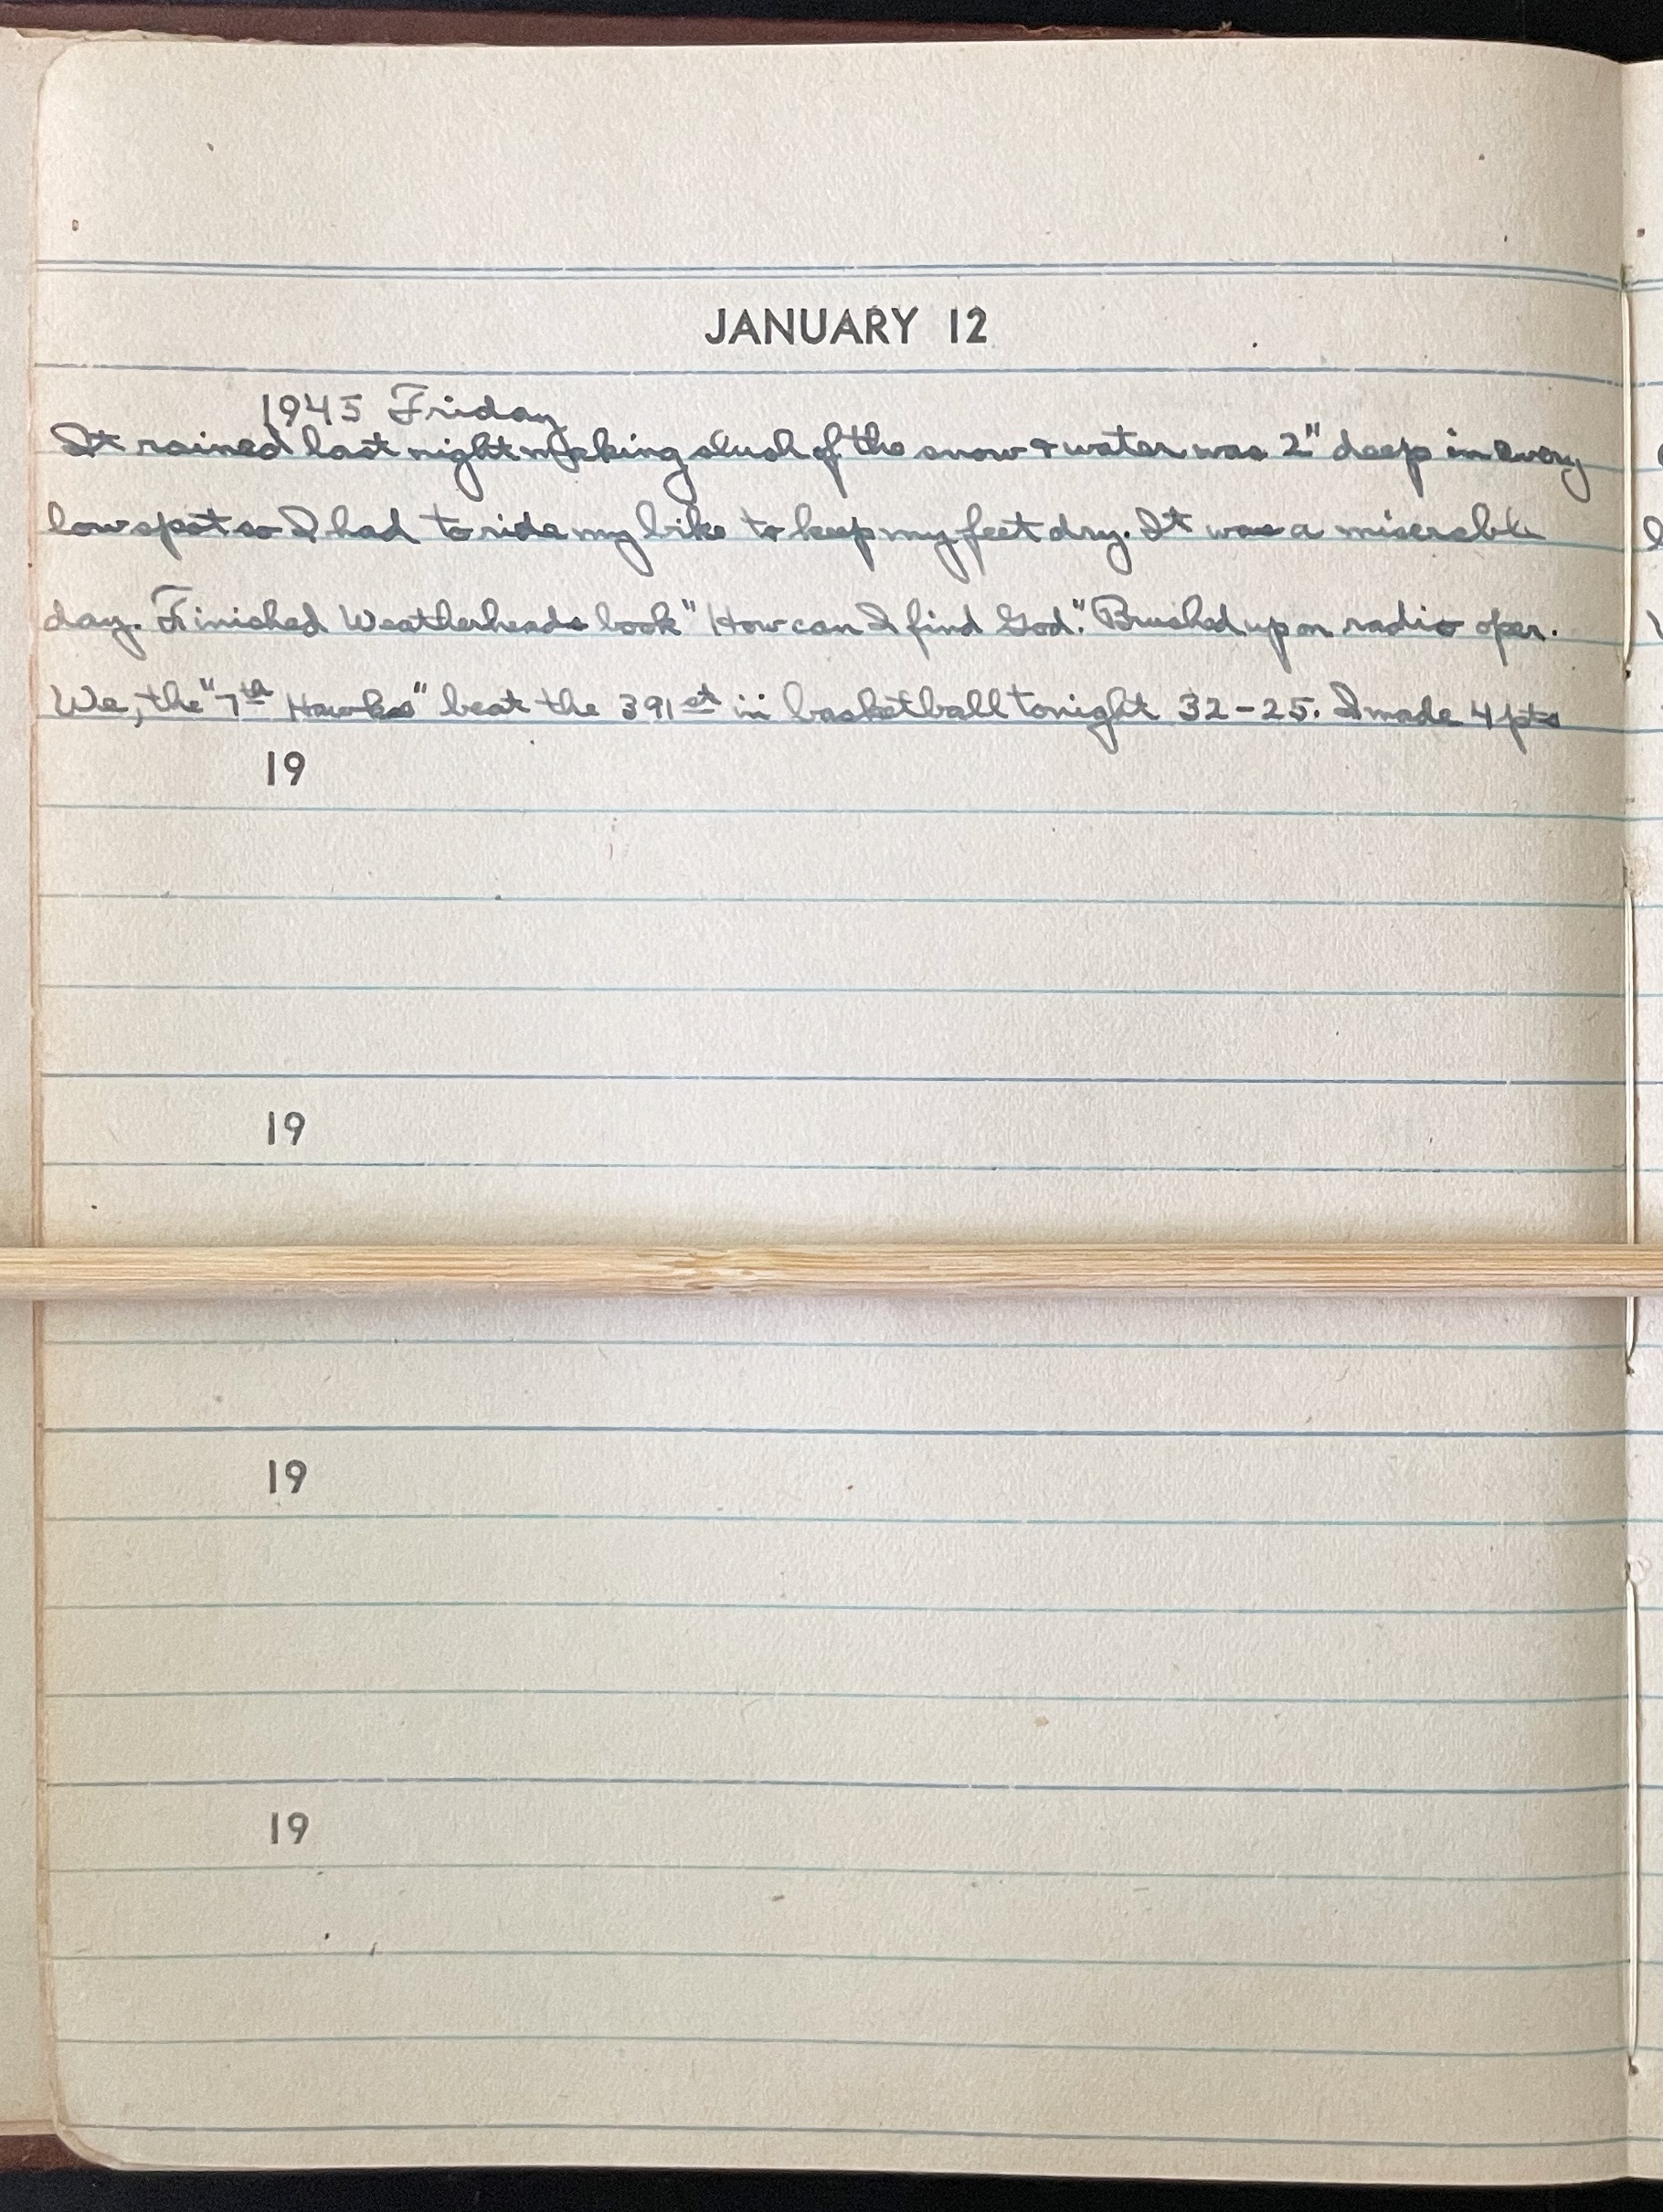 JANUARY 12
1945 Friday
It rained last night making slush of the snow & water was 2" deep in every
low spot so I had to ride my bike to keep my feet dry. It was a miserable
day. Finished Weatherheads book "How can I find God." Brushed up on radio oper.
We, the "7th Hawks" beat the 391st in basketball tonight 32-25. I made 4 pts
19
19
19
19